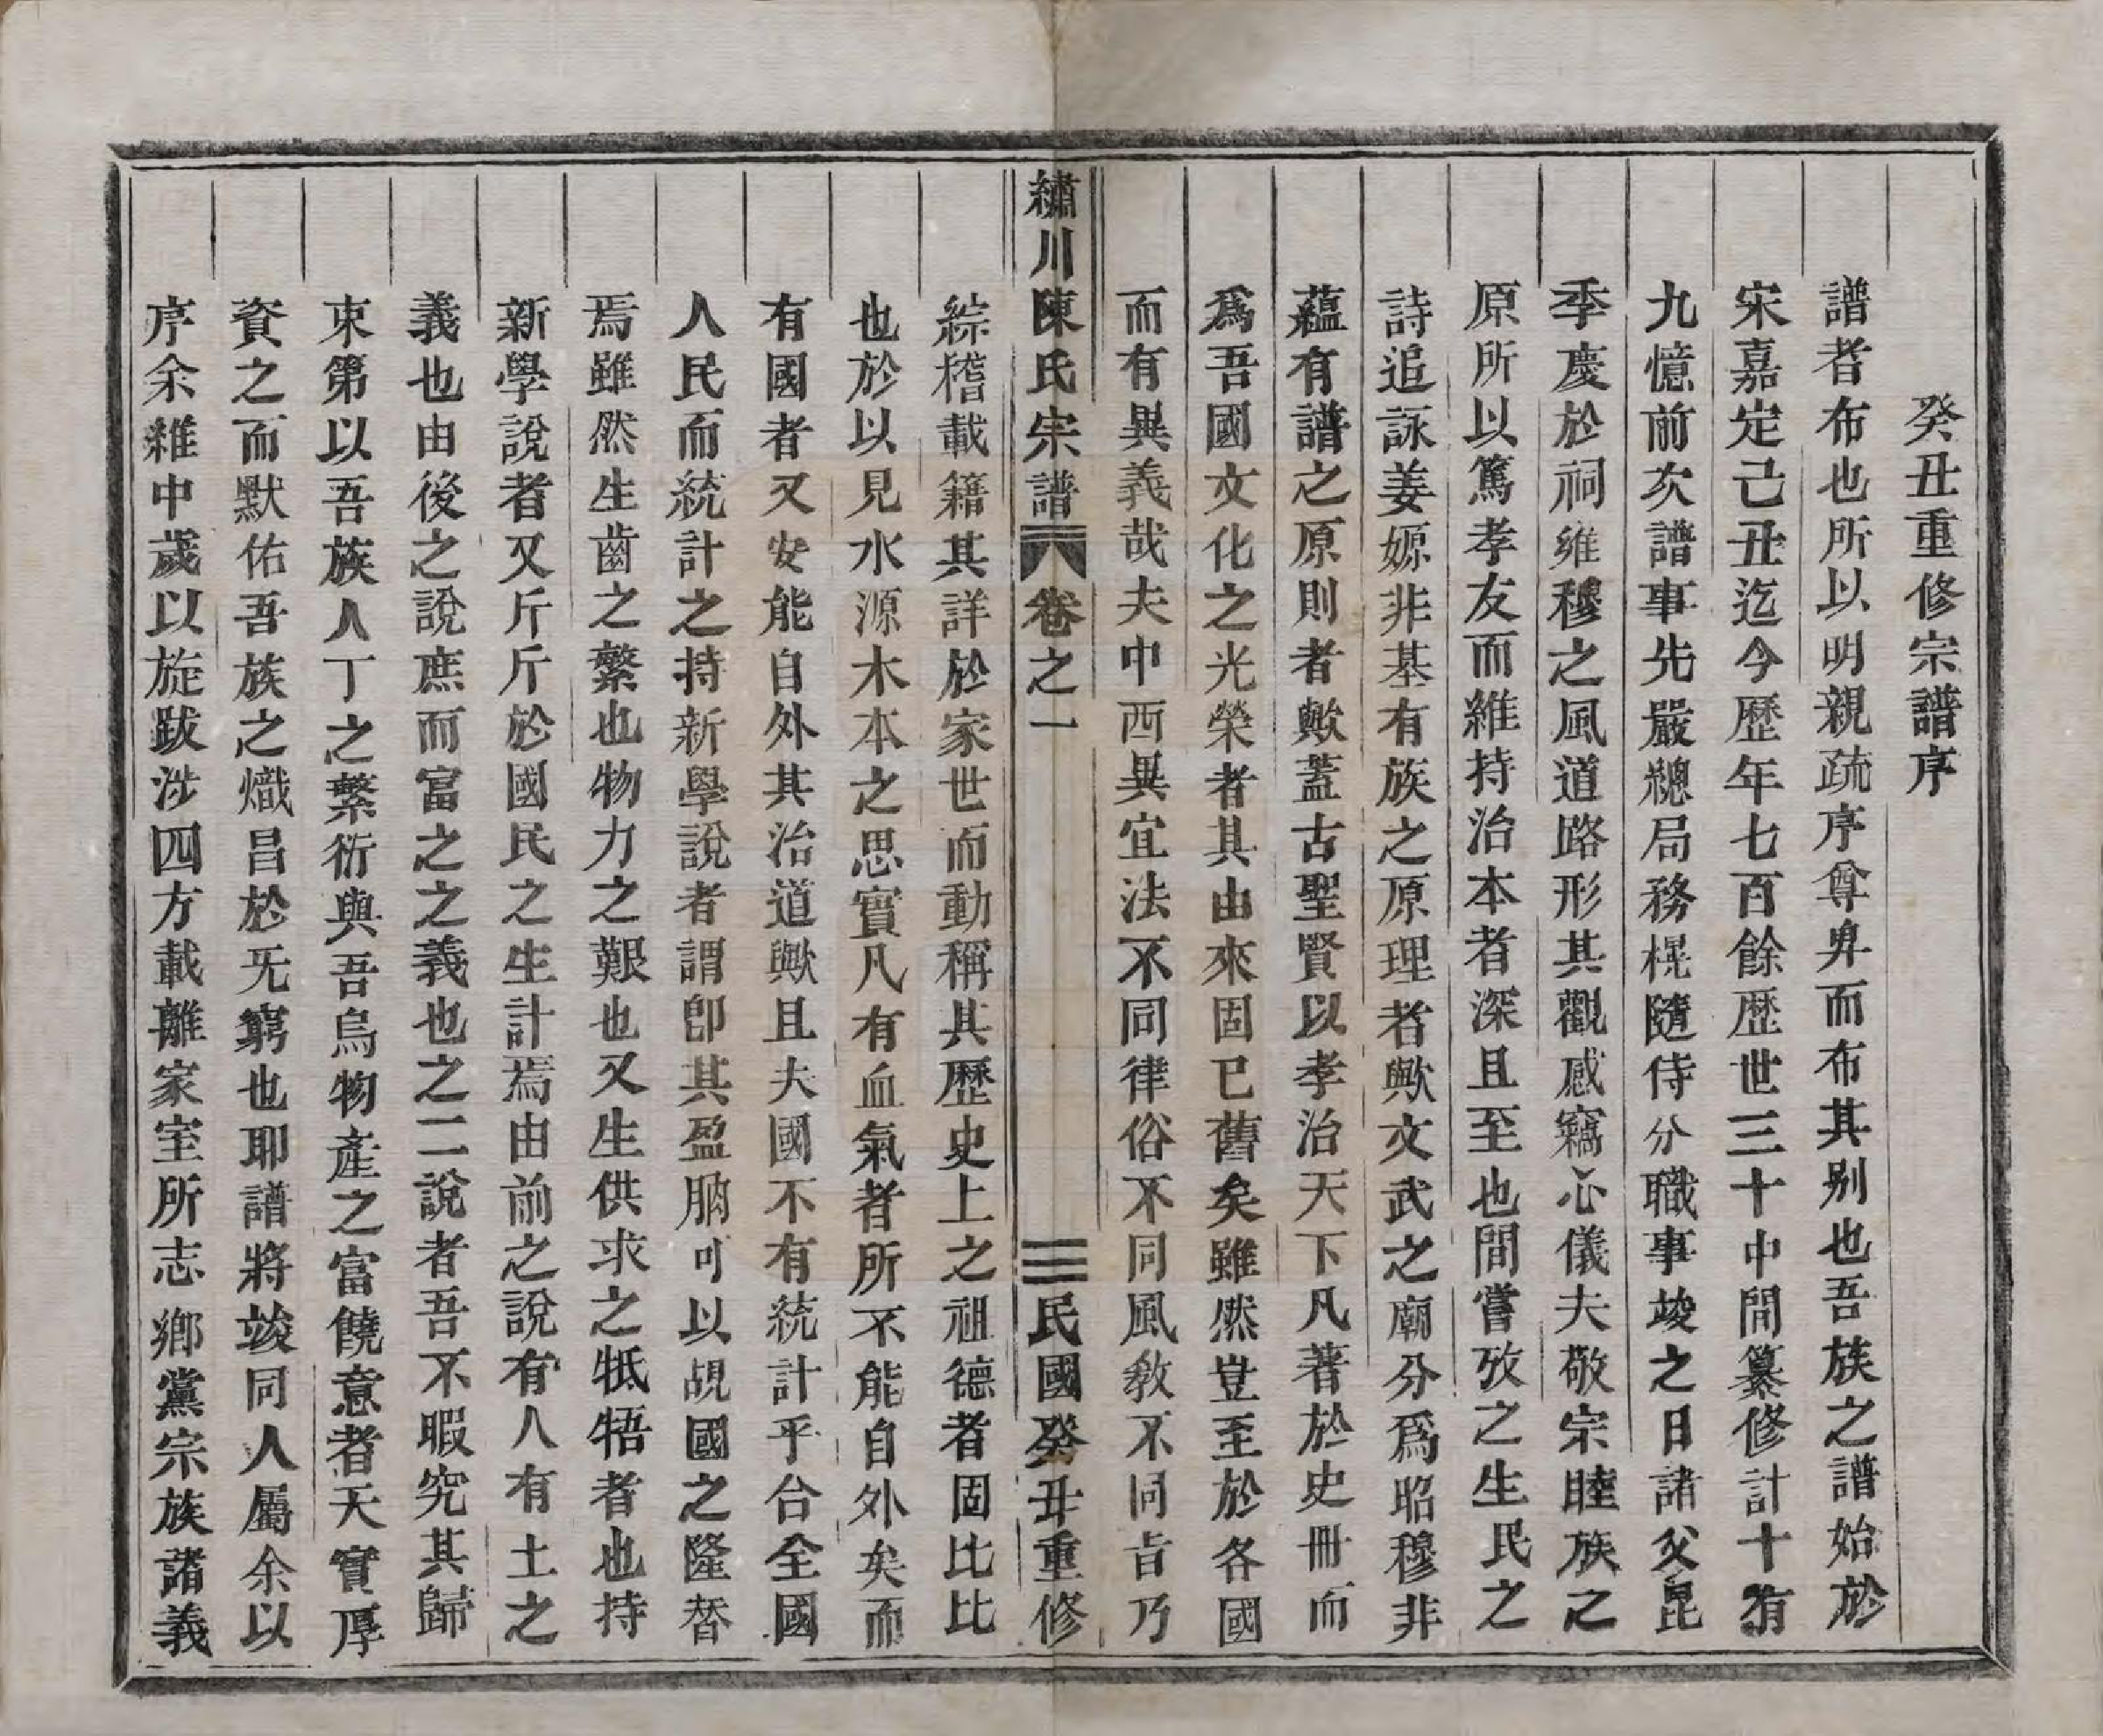 癸丑重修宗譜序
譜者布也所以明親疏序尊卑而布其别也吾族之譜始於
宋嘉定己丑迄今歷年七百餘歷世三十中間纂修計十有
九憶前次譜事先嚴總局務榥隨侍分職事竣之日諸父昆
季慶於祠雍穆之風道路形其觀感竊心儀夫敬宗睦族之
原所以篤孝友而維持治本者深且至也間嘗攷之生民之
詩追詠姜嫄非基有族之原理者歟文武之廟分爲昭穆非
蘊有譜之原則者歟蓋古聖賢以孝治天下凡著於史冊而
爲吾國文化之光榮者其由來固已舊矣雖然豈至於各國
而有異義哉夫中西異宜法不同律俗不同風敎不同旨乃
繡川陳氏宗譜 卷之一 三 民國癸丑重修
綜稽載籍其詳於家世而動稱其歷史上之祖德者固比比
也於以見水源木本之思實凡有血氣者所不能自外矣而
有國者又安能自外其治道歟且夫國不有統計乎合全國
人民而統計之持新學說者謂卽其盈朒可以覘國之隆替
焉雖然生齒之繁也物力之艱也又生供求之牴牾者也持
新學說者又斤斤於國民之生計焉由前之說有人有土之
義也由後之說庶而富之之義也之二說者吾不暇究其歸
束第以吾族人丁之繁衍與吾烏物產之富饒意者天實厚
資之而默佑吾族之熾昌於无窮也耶譜將竣同人屬余以
序余雖中歲以旋跋涉四方載離家室所志鄉黨宗族諸義